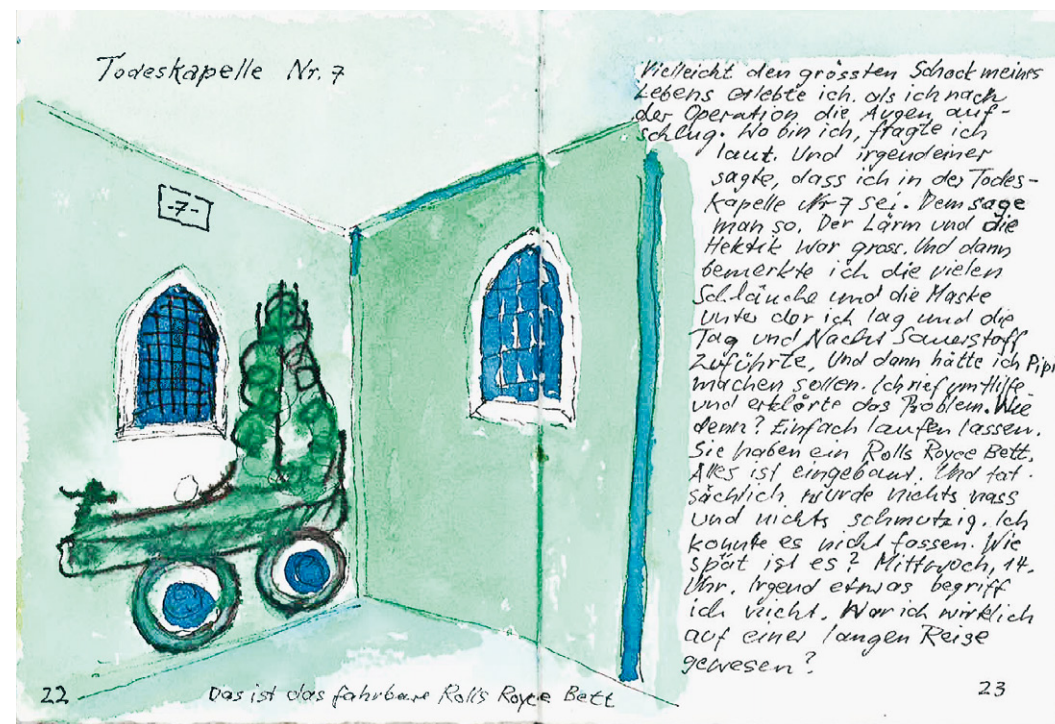 Todeskapelle Nr. 7
-7-
22
Das ist das fahrbare Rolls Royce Bett
Vielleicht den grössten Schock meines
Lebens erlebte ich, als ich nach
der Operation die Augen auf-
schlug. Wo bin ich, fragte ich
laut. Und irgendeiner
sagte, dass ich in der Todes-
kapelle Nr 7 sei. Dem sage
man so. Der Lärm und die
Hektik war gross. Und dann
bemerkte ich die vielen
Schläuche und die Maske
unter der ich lag und die
Tag und Nacht Sauerstoff
zuführte. Und dann hätte ich Pipi
machen sollen. Ich rief um Hilfe
und erklärte das Problem. Wie
denn? Einfach laufen lassen.
Sie haben ein Rolls Royce Bett.
Alles ist eingebaut. Und tat-
sächlich wurde nichts nass
und nichts schmutzig. Ich
konnte es nicht fassen. Wie
spät ist es? Mittwoch, 14.
Uhr. Irgend etwas begriff
ich nicht. War ich wirklich
auf einer langen Reise
gewesen?
23